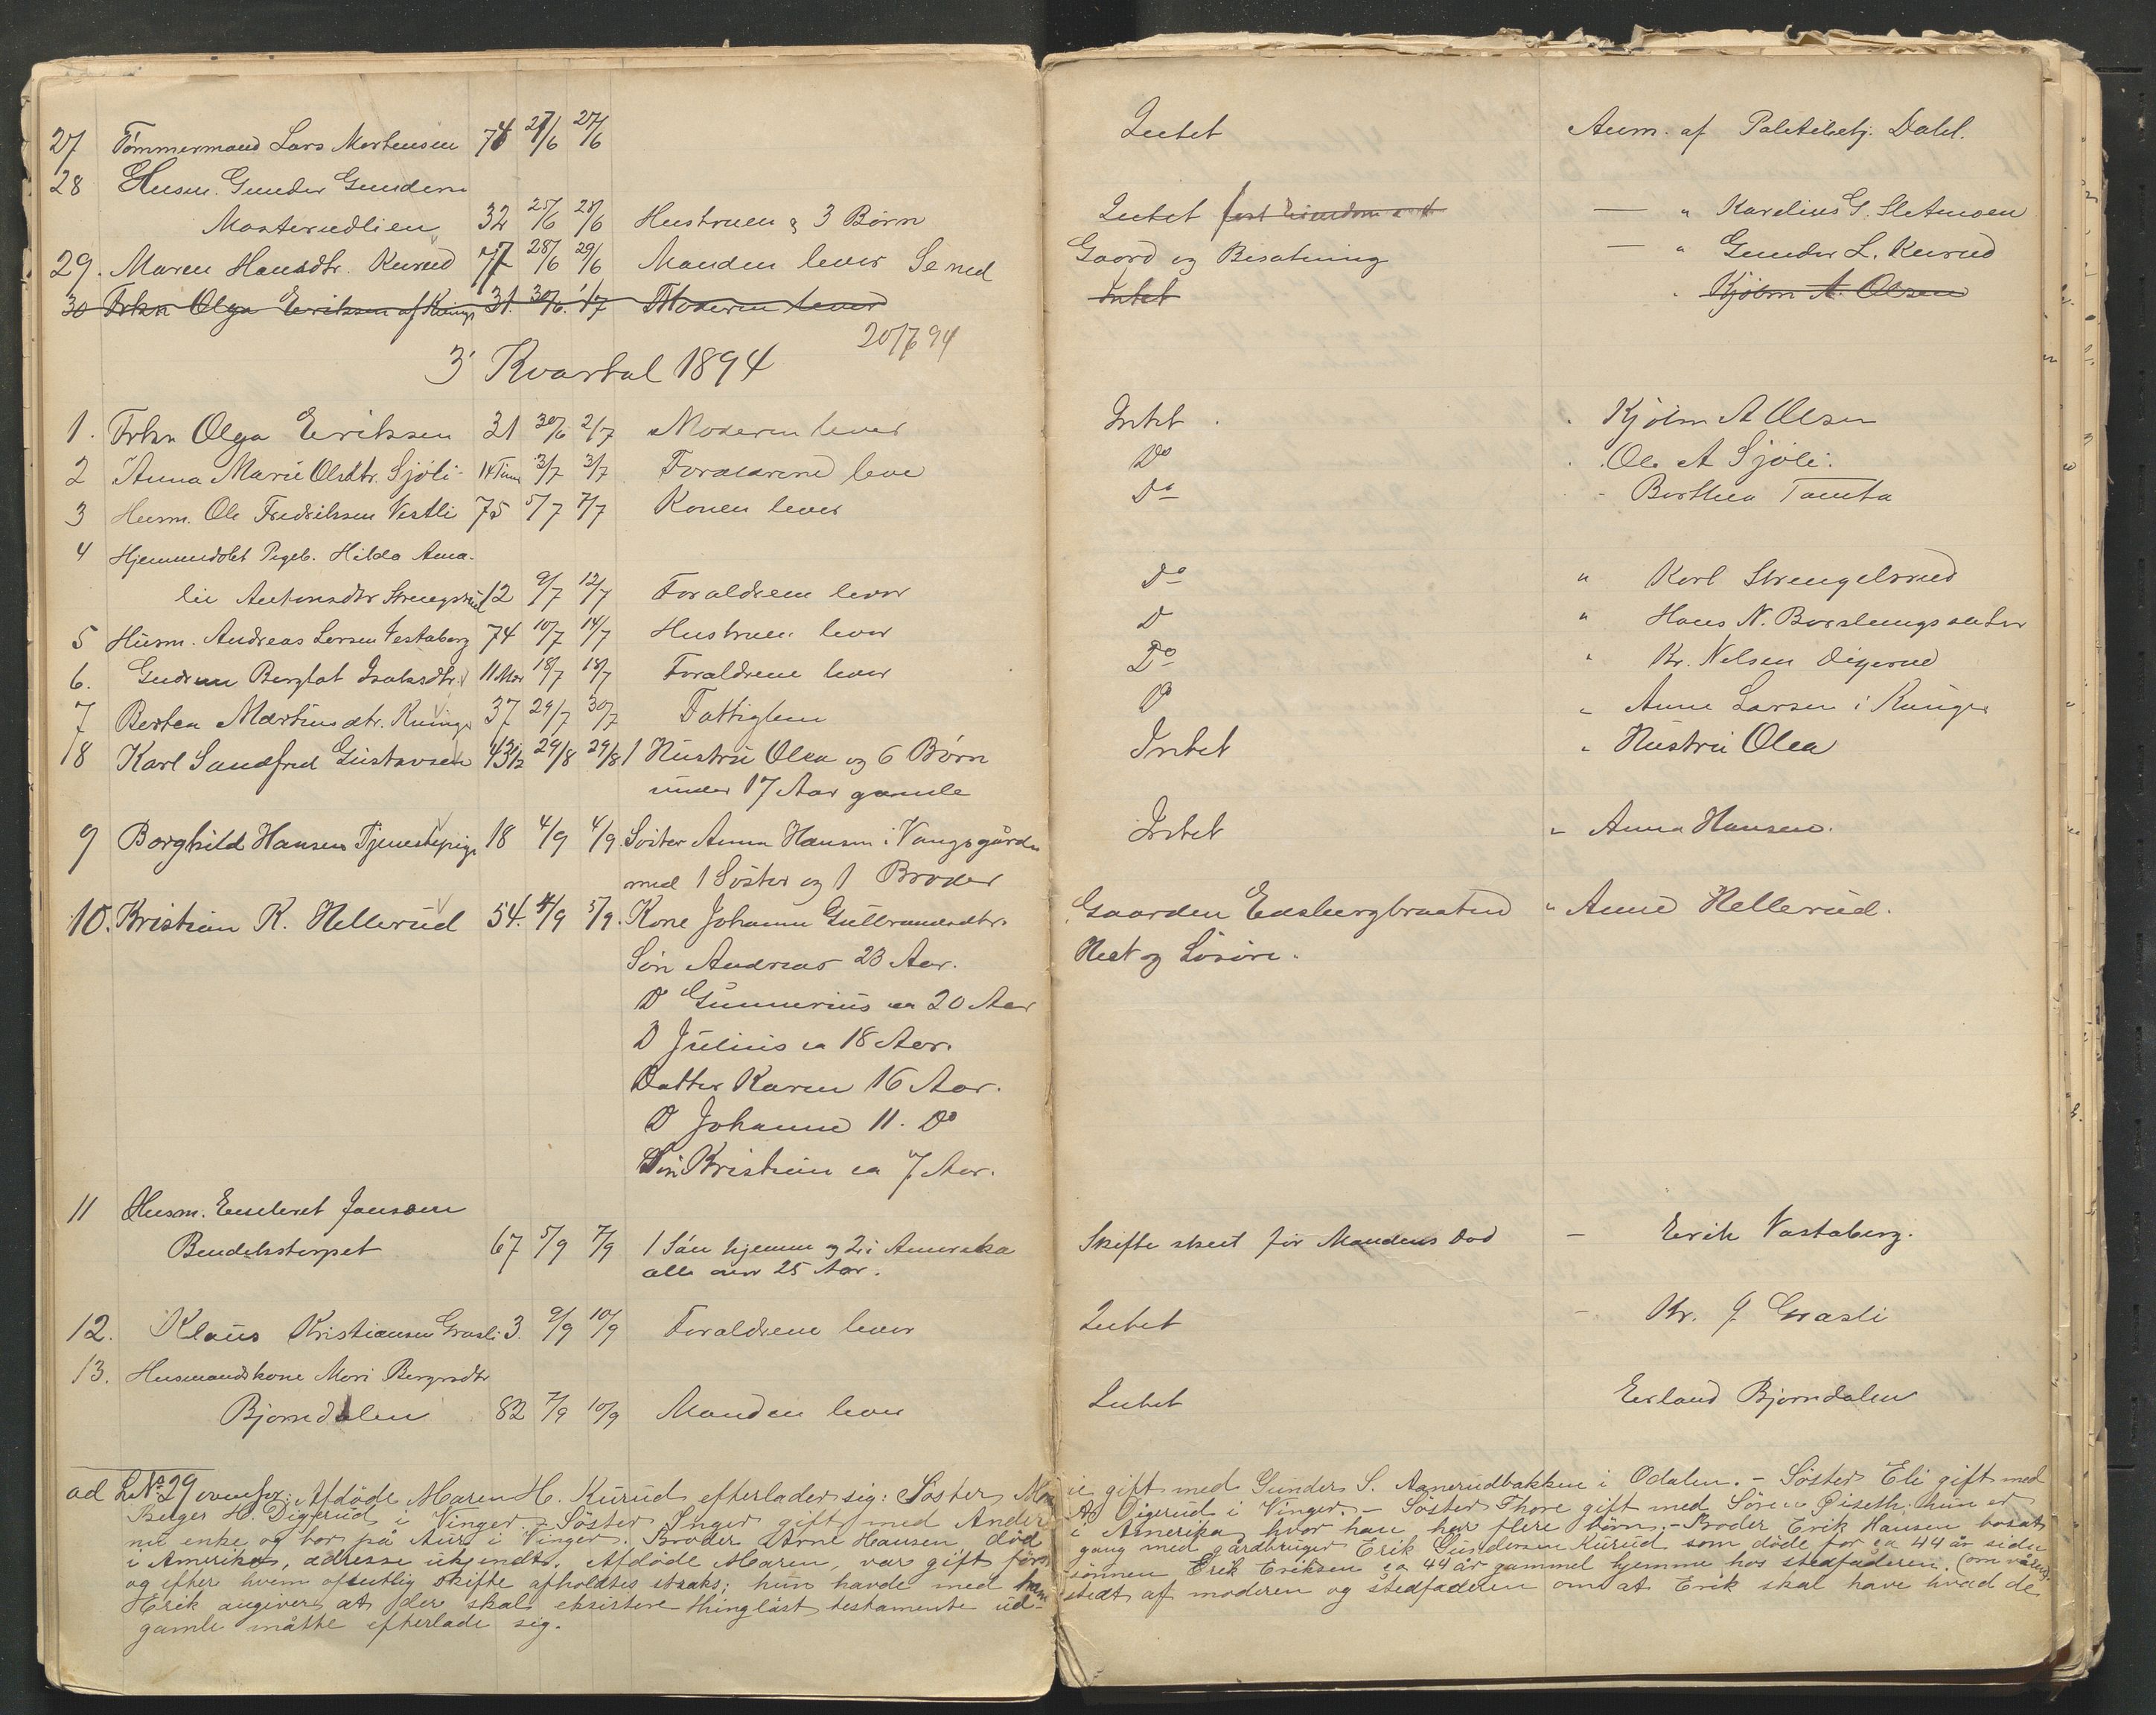 27 Tømmermand Lars Mortensen 74 27/6 27/6 Intet Anm. af Politibetj. Dahl.
28 Husm. Gunder Gundern
Masterudlien 32 25/6 28/6 Hustruen & 3 Børn Intet fast Eiendom — " Karelius G. Sletmoen
29. Maren Hansdtr. Kurud 77 28/6 29/6 Manden lever Se ned Gaard og Besætning — " Gunder L. Kurud
30 Frkn Olga Eriksen af Kvings 31. 30/6. 1/7 Moderen lever Intet " Kjøbm A. Olsen
20/7 94
3' Kvartal 1894
1. Frkn Olga Eriksen 31 30/6 2/7 Moderen lever Intet . " Kjøbm A Olsen
2 Anna Marie Olsdtr. Sjøli 14 Tim 3/7 3/7 Forældrene leve Do " Ole A Sjøli.
3 Husm. Ole Fredriksen Vestli 75 5/7 7/7 Konen lever Do " Berthea Tomta
4 Hjemmedøbt Pigeb. Hilda Ama-
lie Antonsdtr Strengelsrud 12 9/7 12/7 Forældrene lever Do " Karl Strengelsrud
5 Husm. Andreas Larsen Vestaberg 74 10/7 14/7 Hustruen lever D " Hans N. Baslungsæter
6. Gudrun Berglot Isaksdtr. 11 Mdr 18/7 18/7 Forældrene lever Do " Kr. Nelsen Digerud
7 Bertea Martinsdtr. Kvings 37 29/7 30/7 Fattiglem Do " Anne Larsen i Kvinger
18 Karl Sandfred Gustavsen 43 1/2 29/8 29/8 1 Hustru Olea og 6 Børn Intet " Hustru Olea
under 17 Aar gamle
9 Borghild Hansen Tjenestepige 18 4/9 4/9. Søster Anna Hansen i Vangsgården Intet " Anna Hansen.
med 1 Søster og 1 Broder
10. Kristian K. Hellerud 54. 4/9 5/9. Kone Johanne Gulbrandsdtr. Gaarden Edsbergbraaten " Anne Hellerud.
Søn Andreas 23 Aar. Heet og Løsøre.
D Gunnerius ca 20 Aar
D Julius ca 18 Aar.
Datter Karen 16 Aar.
D Johanne 11. Do
Søn Kristian ca 7 Aar.
11 Husm. Engebret Jansen
Bendikstorpet 67 5/9 7/9 1 Søn hjemme og 2 i Amerika Skifte skeet før Mandens Død — Erik Vastaberg.
alle over 25 Aar.
12. Klaus Kristiansen Grasli 3. 9/9 10/9 Forældrene lever Intet — Kr. J Grasli
13. Husmandskone Mari Bergersdtr
Bjørndalen 82 7/9 10/9 Manden lever Intet Erland Bjørndalen
ad L No 29 ovenfor: Afdøde Maren H. Kurud efterlader sig: Søster Marie gift med Gunder S. Aanerudbakken i Odalen. – Søster Eli gift med
Berger H. Digerud i Vinger – Søster Inger gift med Anders Digerud i Vinger. – Søster Thore gift med Søren Øiseth. hun er
nu enke og bor på Aur i Vinger. Broder Arne Hansen død i Amerika, hvor han har flere børn. – Broder Erik Hansen bosat
i Amerika, adresse ukjendt. Afdøde Maren, var gift første gang med gårdbruger Erik Gundersen Kurud som døde for ca 44 år siden
og efter hvem ofentlig skifte afholdtes straks; hun havde med ham sønnen Erik Eriksen ca 44 år gammel hjemme hos stedfaderen.
Erik angiver, at der skal eksistere thinglæst testamente udstedt af moderen og stedfaderen om at Erik skal have hvad de
gamle måtte efterlade sig.